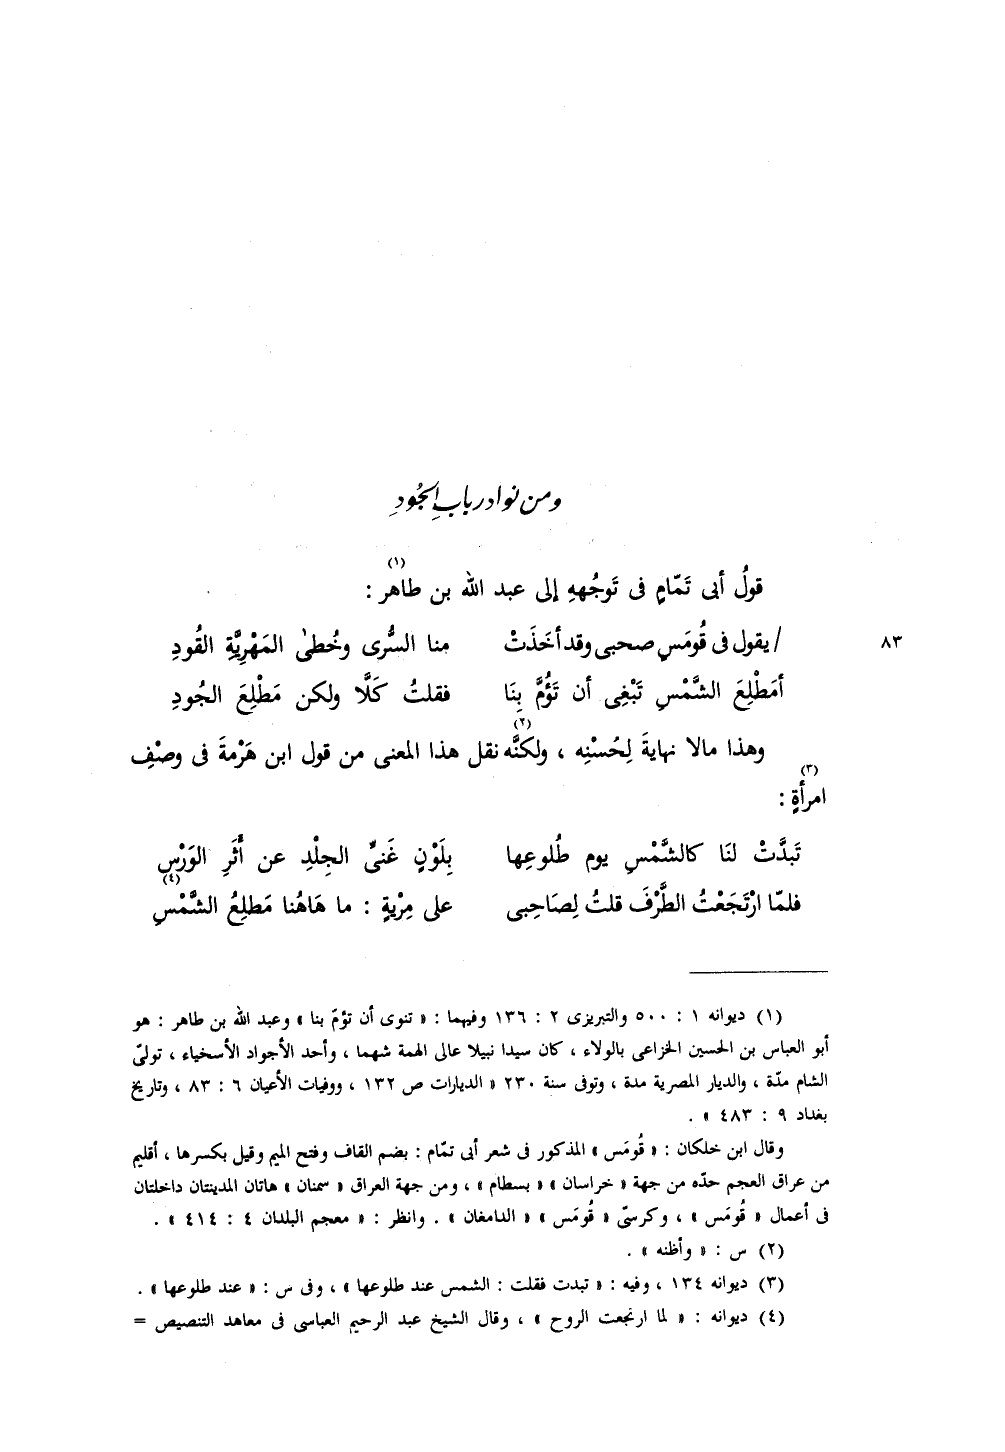 ومن نوادر باب الجُودِ
(١)
قولُ أبى تَمّامٍ فى تَوجُههِ إلى عبد الله بن طاهر :
/ يقول فى قُومَسٍ صحبى وقد أخَذَتْ منا السُّرى وخُطىٰ المَهْرِيَّةِ القُودِ ٨٣
أمَطْلِعَ الشَّمْسِ تَبْغِى أن تَؤُمَّ بِنَا فقلتُ كَلَّا ولكن مَطْلِعَ الجُودِ
(٢)
وهذا مالا نهايةَ لِحُسْنِه ، ولكنَّه نقل هذا المعنى من قول ابن هَرْمةَ فى وصْفِ
(٣)
امرأةٍ :
تَبدَّتْ لنَا كالشَّمْسِ يوم طُلوعِها بِلَوْنٍ غَنىِّ الجِلْدِ عن أَثَرِ الوَرْسِ
(٤)
فلمّا ارْتَجَعْتُ الطَّرْفَ قلتُ لِصَاحِبى على مِرْيةٍ : ما هَاهُنا مَطلِعُ الشَّمْسِ
(١) ديوانه ١ : ٥٠٠ والتبريزى ٢ : ١٣٦ وفيهما : « تنوى أن تؤمّ بنا » وعبد الله بن طاهر : هو
أبو العباس بن الحسين الخزاعى بالولاء ، كان سيدا نبيلا عالى الهمة شهما ، وأحد الأجواد الأسخياء ، تولىّ
الشام مدّة ، والديار المصرية مدة ، وتوفى سنة ٢٣٠ « الديارات ص ١٣٢ ، ووفيات الأعيان ٦ : ٨٣ ، وتاريخ
بغداد ٩ : ٤٨٣ » .
وقال ابن خلكان : « قُومَس » المذكور فى شعر أبى تمّام : بضم القاف وفتح الميم وقيل بكسرها ، أقليم
من عراق العجم حدّه من جهة « خراسان » « بسطام » ، ومن جهة العراق « سمنان » هاتان المدينتان داخلتان
فى أعمال « قُومَس » ، وكرسىّ « قُومَس » « الدامغان » . وانظر : « معجم البلدان ٤ : ٤١٤ » .
(٢) س : « وأظنه » .
(٣) ديوانه ١٣٤ ، وفيه : « تبدت فقلت : الشمس عند طلوعها » ، وفى س : « عند طلوعها » .
(٤) ديوانه : « لما ارتجعت الروح » ، وقال الشيخ عبد الرحيم العباسى فى معاهد التنصيص =